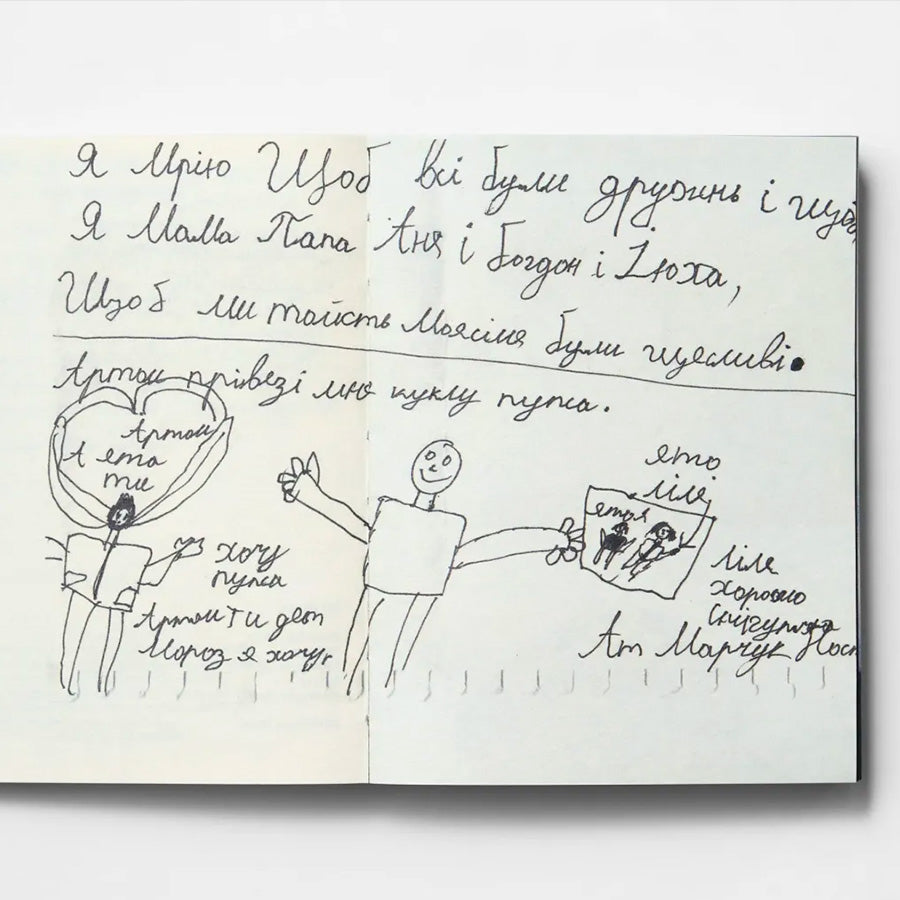 Я Мрію Щоб всі були дружнь і щоб
Я Мама Папа Аня і богдон і Іюха,
Щоб ми тоїсть Моясімя були щесливі.
Артом прівезі мнє куклу пупса.
Артом
А ета
ти
ето
ліля
етоя
хочу
пупса
Артом ти дет
Мороз я хочу
ліля
хорошо
Снігурка
Ат Марчук Наст